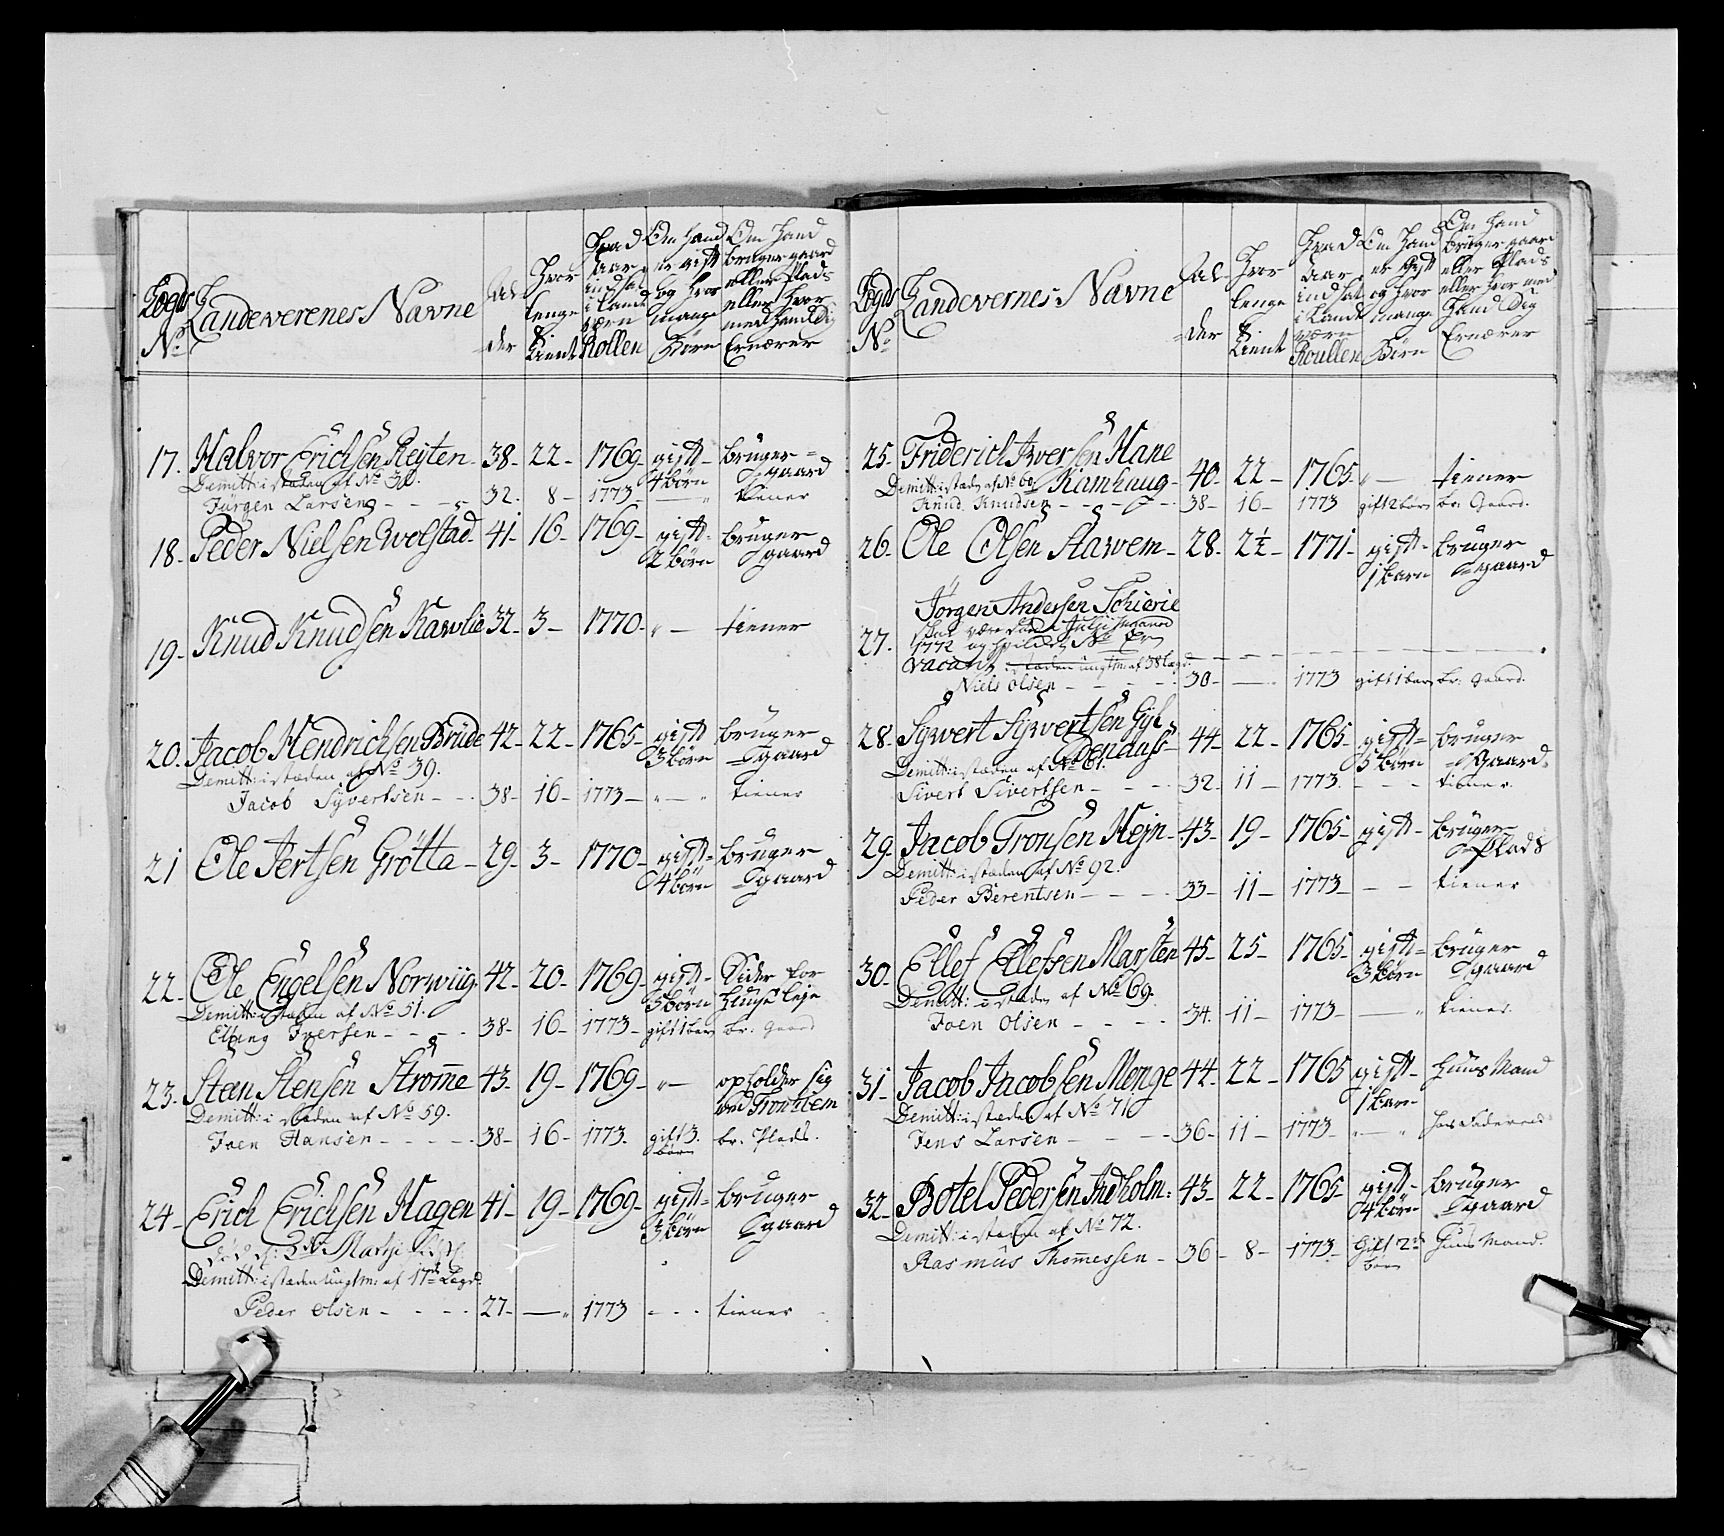 Legds No. Landeverenes Navne Alder Hvor lenge tient Hvad Aar indsat i Land værn Rollen Om Hand er gift og hvor mange Børn Om Hand bruger gaard eller Plads eller hvor med Hand Sig Ernærer
17. Halvor Erichsen Reÿten 38 - 22 - 1769 - gift - 4 børn bruger gaard
Demitt: i stæden af No 30.
Jürgen Larsen - - 32. 8 - 1773 - tiener
18. Peder Nielsen Wolstad 41 - 16 - 1769 - gift - 2 børn bruger gaard
19 - Knud Knudsen Kavlie 32 - 3 - 1770 - " - tiener
20. Jacob Hendrichsen Brüde 42 - 22 - 1765 - gift 3 børn bruger gaard
Demitt: i stæden af No 39.
Jacob Sÿvertsen - - 38 - 16 - 1773 - " - " tiener
21 Ole Jertsen Grötta - 29 - 3 - 1770 - gift - 4 børn bruger gaard
22 - Ole Engelsen Norwiig 42 - 20 - 1769 - gift - 3 børn Sider for Huuse leje
Demitt: i stæden af No 51.
Iversen - - - 38 - 16 - 1773 - gift 1 barn br: Gaard
23. Steen Stensen Strømme 43 - 19 - 1769 - " - opholder sig ved Tronhiem
Demitt: i stæden af No 59.
Joen Hansen - - - - 38 - 16 - 1773. gift 3. børn br. Plads.
24 - Erich Erichsen Hagen 41 - 19 - 1769 - gift - 3 børn bruger gaard
Martji
Demitt: i stæden ungtm: af 17de Legd
Peder Olsen - - - - 27 - — " 1773 - - - tiener
Legds No. Landevernes Navne Alder Hvor lenge tient Hvad Aar indsat i Land værn Roullen Om Hand er gift og hvor mange Børn Om Hand bruger gaard eller Plads eller hvor med Hand Sig Ernærer
25. Friderich Iversen Hane
Kamhaug - 40 - 22 - 1765 - " - tiener
Demitt: i stæden af No 60
Knud Knudsen - - - 38 - 16 - 1773 gift 2 børn br: Gaard.
26. Ole Olsen Aarvem - 28 - 2½ - 1771 - gift - 1 barn bruger gaard
Jørgen Andersen Schierie
27. skal være død i Julji Maaned
1772 og
vacant, i stæden ungtm: af 38 Legd.
Niels Olsen - - - - 30 - — 1773 gift 1 barn br: Gaard.
28. Sÿvert Sÿvertsen 44 - 22 - 1765 - gift - 5 børn bruger gaard
Demitt: i stæden af No 61.
Sivert Sivertsen - - - 32 - 11 - 1773. - - - tiener
29. Jacob Tronsen Hejn - 43 - 19 - 1765 - gift - bruger Plads
Demitt: i stæden af No 92.
Peder Berentsen - - - 33 - 11 - 1773 - - - tiener
30. Ellef Ellefsen Marsten 45 - 25 - 1765 - gift - 3 børn bruger gaard
Demitt: i stæden af No 69.
Joen Olsen - - - - 34. 11 - 1773 - — " tiener
31 Jacob Jacobsen Monge 44 - 22 - 1765 gift - 1 barn Huus Mand
Demitt: i stæden af No 71
Jens Larsen - - - 36 - 11 - 1773 - " - "
32 - Botel Pedersen Indholm 43 - 22 - 1765 - gift - 4 børn bruger gaard
Demitt: i stæden af No 72.
Rasmus Thomessen - 36 - 8 - 1773 - Gift 2 børn Huus Mand.